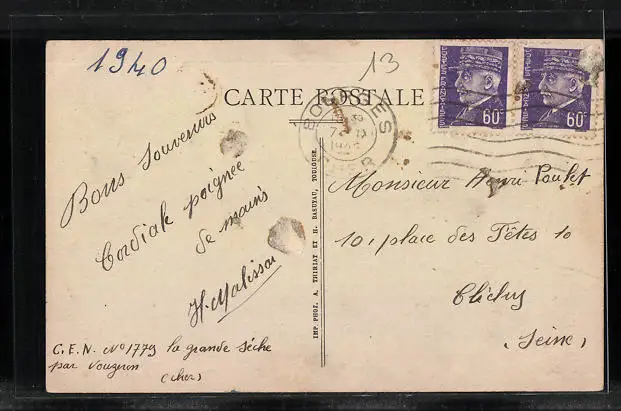 1940
13
CARTE POSTALE
BOURGES
CHER
60c
60c
Bons Souvenirs
Cordiale poignée
de mains
H. Malissar
C.E.N. No 1779 la grande Sèche
par Vouzeron
(cher)
IMP. PHOT. A. THIRIAT ET H. BASUYAU, TOULOUSE.
Monsieur Henri Poulet
10, place des Fêtes 10
Clichy
(Seine)